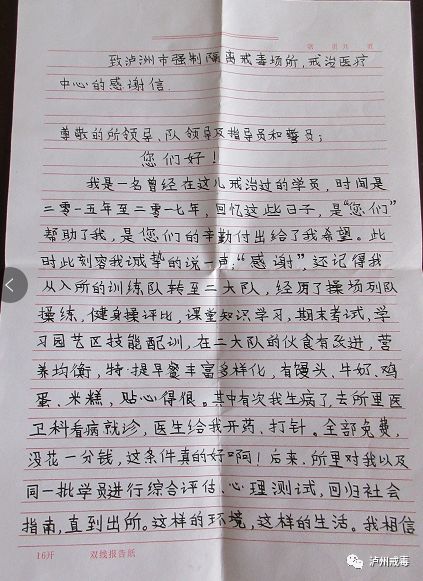 第 页 共 页
致泸洲市强制隔离戒毒场所,戒治医疗
中心的感谢信.
尊敬的所领导、队领导及指导员和警员;
您们好!
我是一名曾经在这儿戒治过的学员,时间是
二零一五年至二零一七年,回忆这些日子,是“您们”
帮助了我,是您们的辛勤付出给了我希望。此
时此刻容我诚挚的说一声,“感谢”,还记得我
从入所的训练队转至二大队,经历了操场列队
操练,健身操评比,课堂知识学习,期末考试,学
习园艺区技能配训,在二大队的伙食有改进,营
养均衡,特·提早餐丰富多样化,有馒头、牛奶、鸡
蛋、米糕,贴心得很。其中有次我生病了,去所里医
卫科看病就诊,医生给我开药、打针。全部免费,
没花一分钱,这条件真的好啊!后来.所里对我以及
同一批学员进行综合评估、心理测试,回归社会
指南,直到出所。这样的环境,这样的生活。我相信
16开 双线报告纸
泸州戒毒